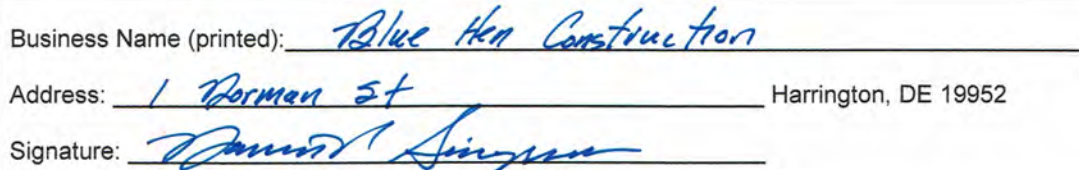 Business Name (printed): Blue Hen Construction
Address: 1 Dorman St Harrington, DE 19952
Signature: